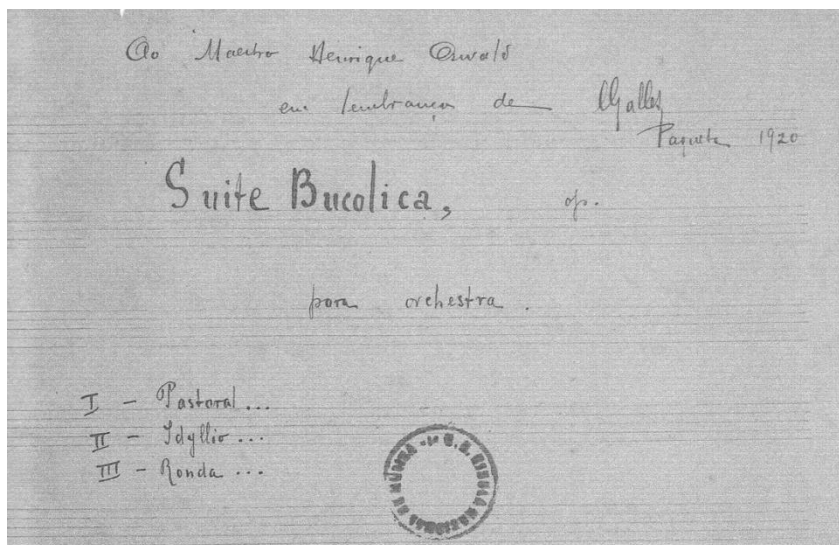 Ao Maestro Henrique Oswald
em lembrança de LGallet
Paqueta 1920
Suite Bucolica, op.
para orchestra.
I - Pastoral...
II - Idyllio...
III - Ronda...
ESCOLA NACIONAL DE MÚSICA